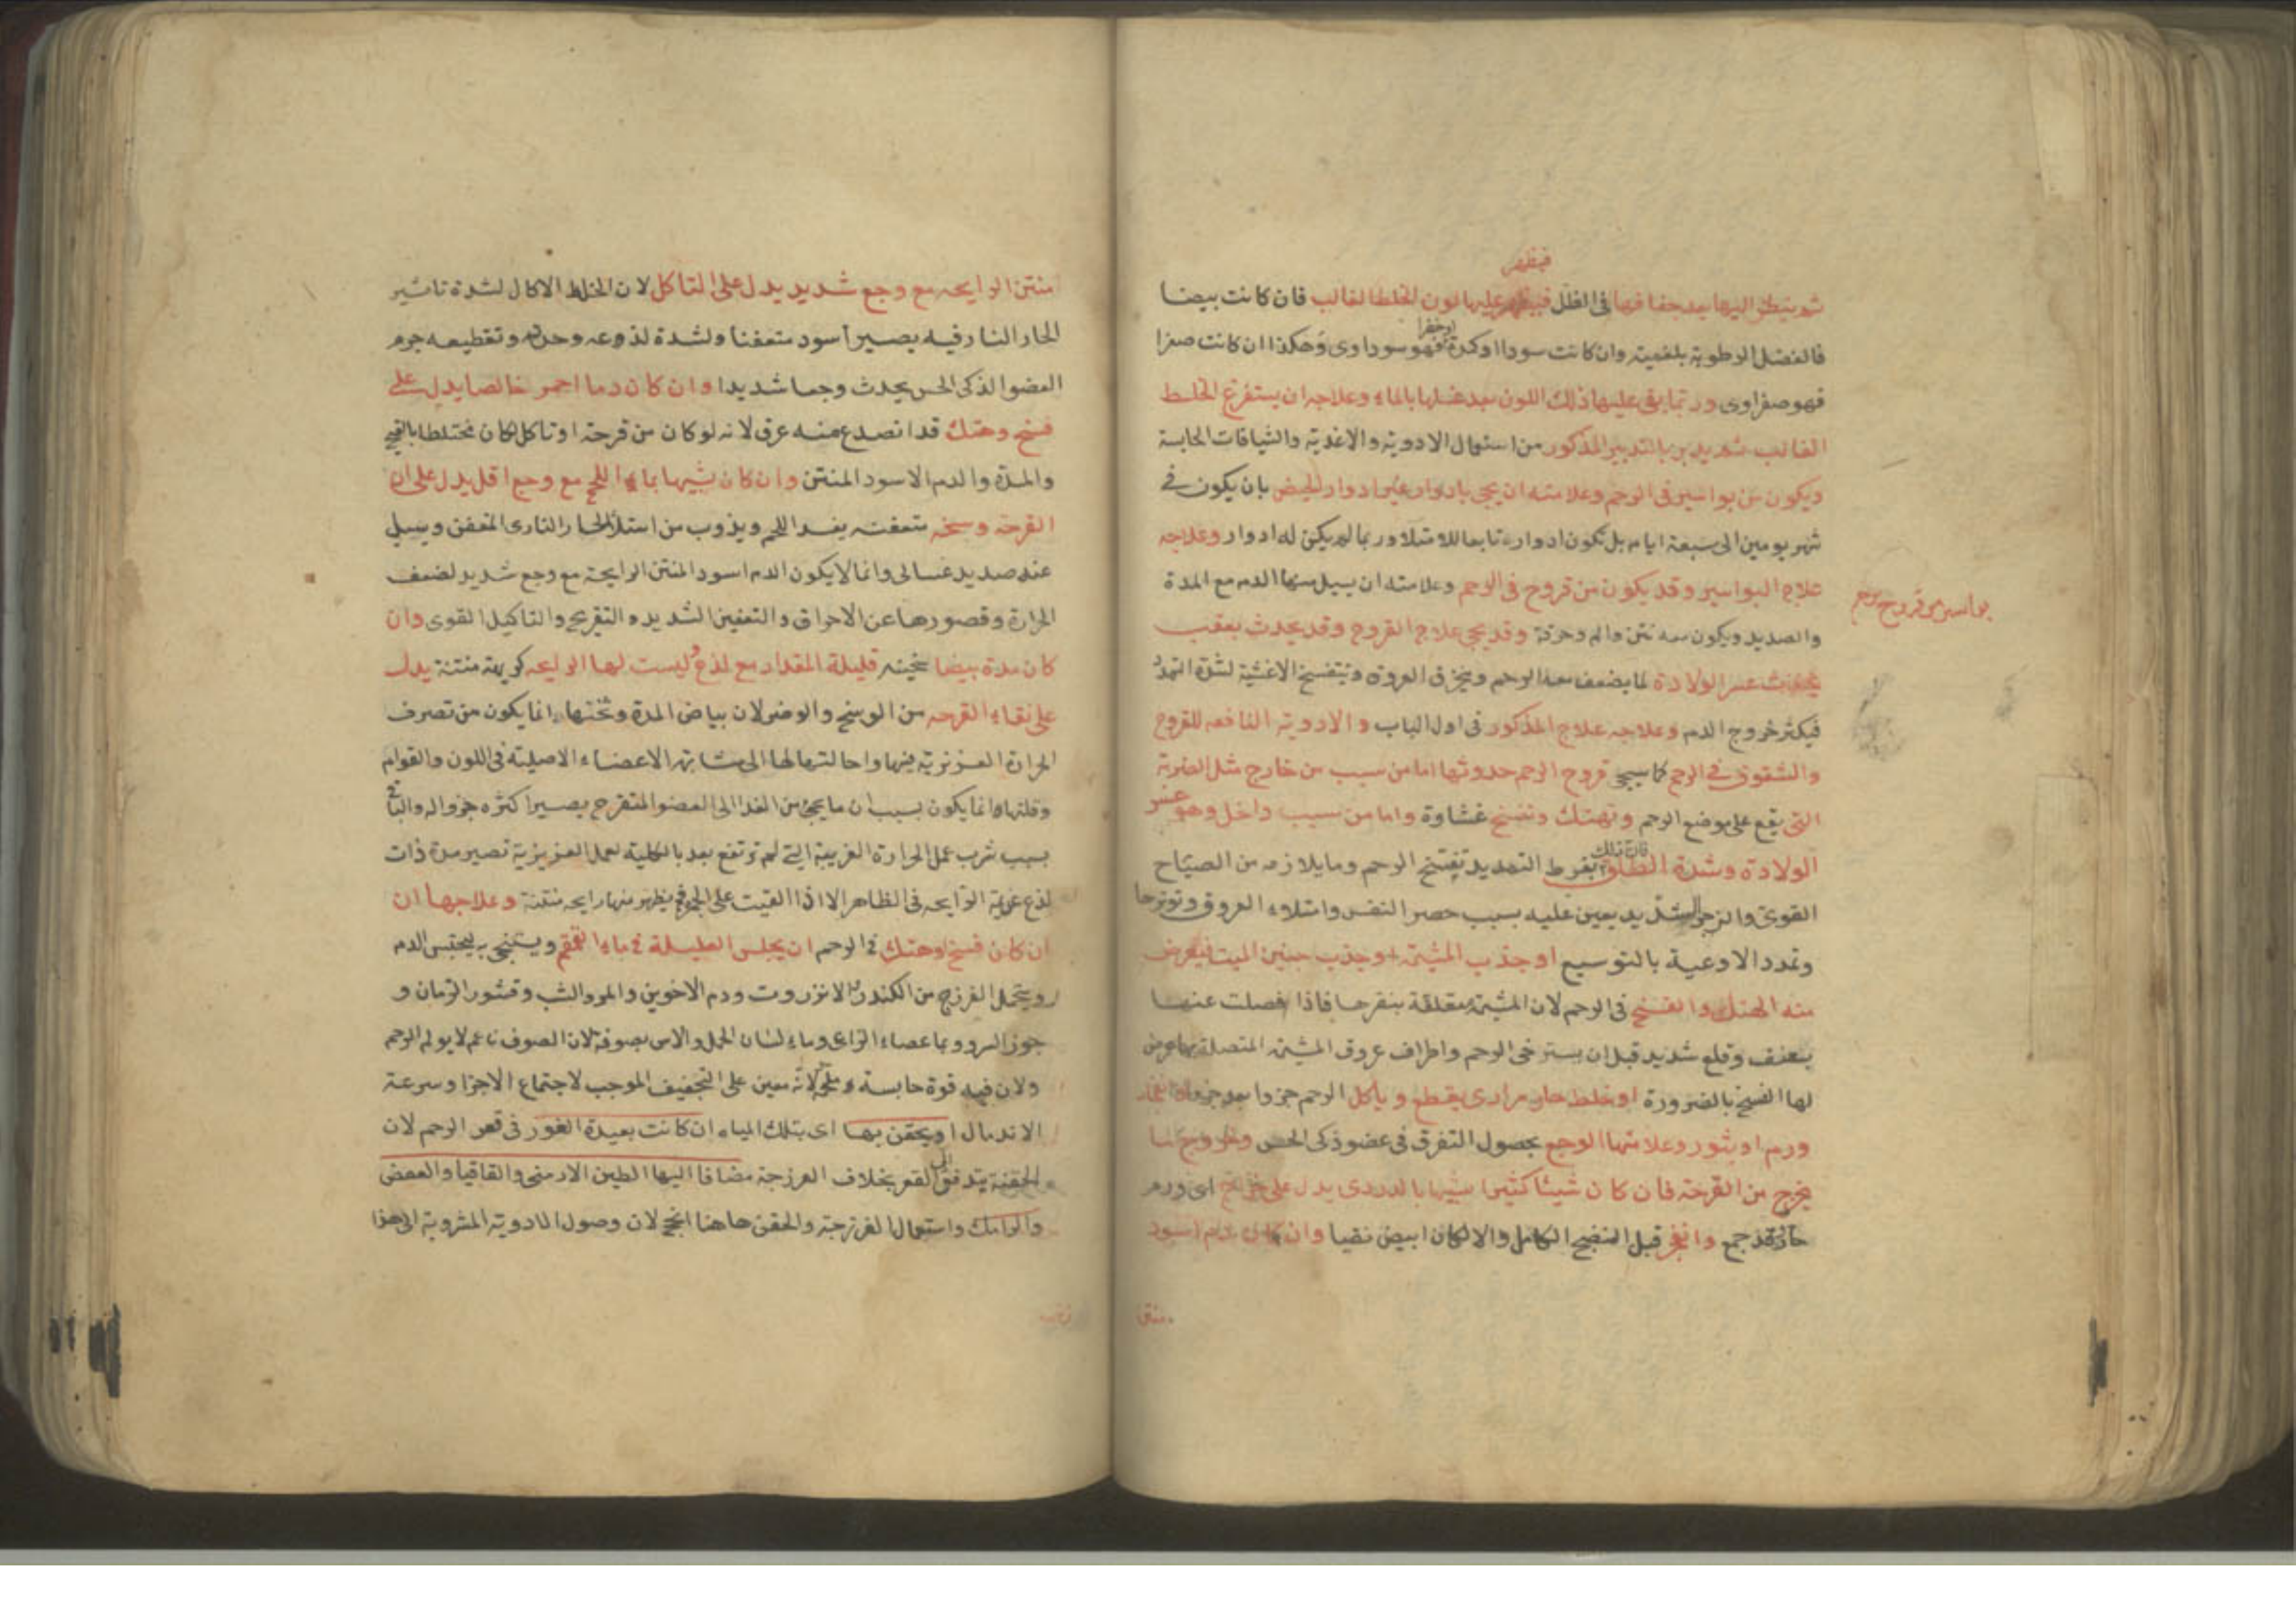 فيظهر
ثم ينظر اليها بعد جفافها فى الظل فيظهر عليها لون الخلط الغالب فان كانت بيضا
فالفضل الرطوبة بلغمية وان كانت سودا او كدرة او خضرا فهو سوداوى وهكذا ان كانت صفرا
فهو صفراوى وربما بقى عليها ذلك اللون بعد غسلها بالماء وعلاجه ان يستفرغ الخلط
الغالب ثم يدبر بالتدبير المذكور من استعمال الادوية والاغدية والشيافات الحابسة
ويكون من بواسير فى الرحم وعلامته ان يجى بادوار غير ادوار الحيض بان يكون فى
شهر يومين الى سبعة ايام بل تكون ادواره تابعا للامتلا وربما لم يكن له ادوار وعلاجه
علاج البواسير وقد يكون من قروح فى الرحم وعلامته ان يسيل منها الدم مع المدة
بواسير من قروح رحم
والصديد ويكون معه نتن والم وحرقة وقد يجى علاج القروح وقد يحدث بعقب
عسر الولادة لما يضعف معه الرحم ويخرق العروق وتنفسخ الاغشية لشدة التمدد
فيكثر خروج الدم وعلاجه علاج المذكور فى اول الباب والادوية النافعه للقروح
والشقوق فى الرحم كما سيجى قروح الرحم حدوثها اما من سبب من خارج مثل الضربة
التى يقع على موضع الرحم وتهتك وتفسخ غشاوة واما من سبب داخل وهو عسر
الولادة وشدة الطلق فان ذلك بفرط التمديد تفتح الرحم وما يلازمه من الصياح
القوى والزجر الشديد يعين عليه بسبب حصر النفس وامتلاء العروق وتوترها
وتمدد الاوعية بالتوسيع او جذب المشيمة او جذب جنين الميت فيعرض
منه الهتك والفسخ فى الرحم لان المشيمة متعلقة بنقرها فاذا فصلت عنها
بعنف وقلع شديد قبل ان يسترخى الرحم واطراف عروق المشيمة المتصلة بها عرض
لها الفسخ بالضرورة او خلط حار مرارى يقطع وياكل الرحم جزوا بعد جزو او انفجار
ورم او بثور وعلامتها الوجع بحصول التفرق فى عضو ذكى الحس وخروج ما
يخرج من القرحة فان كان شيئا كثيرا شبيها بالدردى يدل على خراج اى ورم
حار قد جمع وانفجر قبل النضج الكامل والا لكان ابيض نقيا وان كان دم اسود
منتن
منتن الرايحه مع وجع شديد يدل على التاكل لان الخلط الاكال لشدة تاثير
الحار النار فيه يصير اسود متعفنا ولشدة لذعه وحدته وتقطيعه جرم
العضو الذكى الحس يحدث وجعا شديدا وان كان دما احمر خالصا يدل على
فسخ وهتك قد انصدع منه عرق لانه لو كان من قرحة او تاكل لكان مختلطا بالقيح
والمدة والدم الاسود المنتن وان كان شبيها بماء اللحم مع وجع اقل يدل على ان
القرحة وسخه متعفنه يفسد اللحم ويذوب من استلا الحار النارى المعفن ويسيل
عنه صديد غسالى وانما لا يكون الدم اسود المنتن الرايحة مع وجع شديد لضعف
الحرارة وقصورها عن الاحراق والتعفين الشديد و التقريح والتاكيل القوى وان
كان مدة بيضا ثخينه قليلة المقدار مع لذع وليست لها الرايحه كريهة منتنة يدل
على نقاء القرحه من الوسخ والوضر لان بياض المدة وثخنها انما يكون من تصرف
الحرارة الغريزية فيها واحالتها لها الى مشابهة الاعضاء الاصلية فى اللون والقوام
وقلتها وانما يكون بسبب ان ما يجى من الغدا الى العضو المتقرح يصير اكثره جزوا له والباقى
بسبب شرب عمل الحرارة الغريبة التى لم ترتفع بعد بالكلية لعمل الغريزية تصير مدة ذات
لذع عديمة الرايحه فى الظاهر الا اذا القيت على الجمر فيظهر منها رايحه منتنة وعلاجها ان
ان كان فسخ وهتك فى الرحم ان يجلس العليلة فى ماء القمقم ويستنجى به ليحتبس الدم
ويتحمل الفرزج من الكندر والانزروت ودم الاخوين والمر والشب وقشور الرمان و
جوز السرو وبماء عصاء الراعى وماء لسان الحمل والاس بصوفة لان الصوف ناعم لا يولم الرحم
ولان فيه قوة حابسة و لانه معين على التجفيف الموجب لاجتماع الاجزا وسرعة
الاندمال او يحقن بها اى بتلك المياه ان كانت بعيدة الغور فى قعر الرحم لان
الحقنة يتدفق الى القعر بخلاف الفرزجة مضافا اليها الطين الارمنى والقاقيا والعفص
والرامك واستعمال الفرزجة والحقن هاهنا انجح لان وصول الادوية المشروبة الى هذا